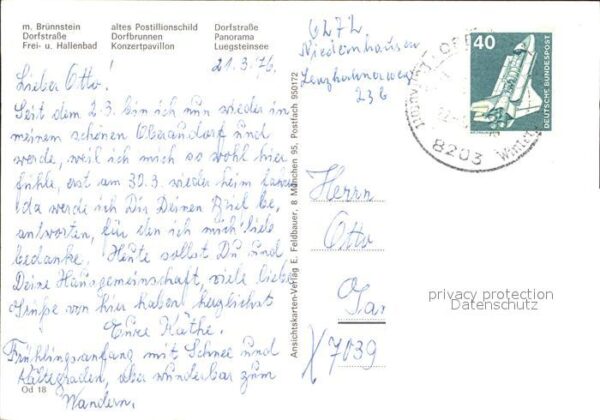 m. Brünnstein
Dorfstraße
Frei- u. Hallenbad
altes Postillionschild
Dorfbrunnen
Konzertpavillon
Dorfstraße
Panorama
Luegsteinsee
21.3.76.
Lieber Otto!
Seit dem 2.3. bin ich nun wieder in
meinem schönen Oberaudorf und
werde, weil ich mich so wohl hier
fühle, erst am 30.3. wieder heim
da werde ich Dir Deinen Brief be,
antworten, für den ich mich liebe
bedanke. Heute sollst Du und
Deine Hausgemeinschaft, viele liebe
Grüße von hier haben herzlichst
Eure Käthe.
Frühlingsanfang mit Schnee und
Kältegraden, aber wunderbar zum
Wandern.
Od 18
Ansichtskarten-Verlag E. Feldbauer, 8 München 95, Postfach 950172
6272
Niedernhausen
23 b
40
DEUTSCHE BUNDESPOST
8203
Herrn
Otto
privacy protection
Datenschutz
7039